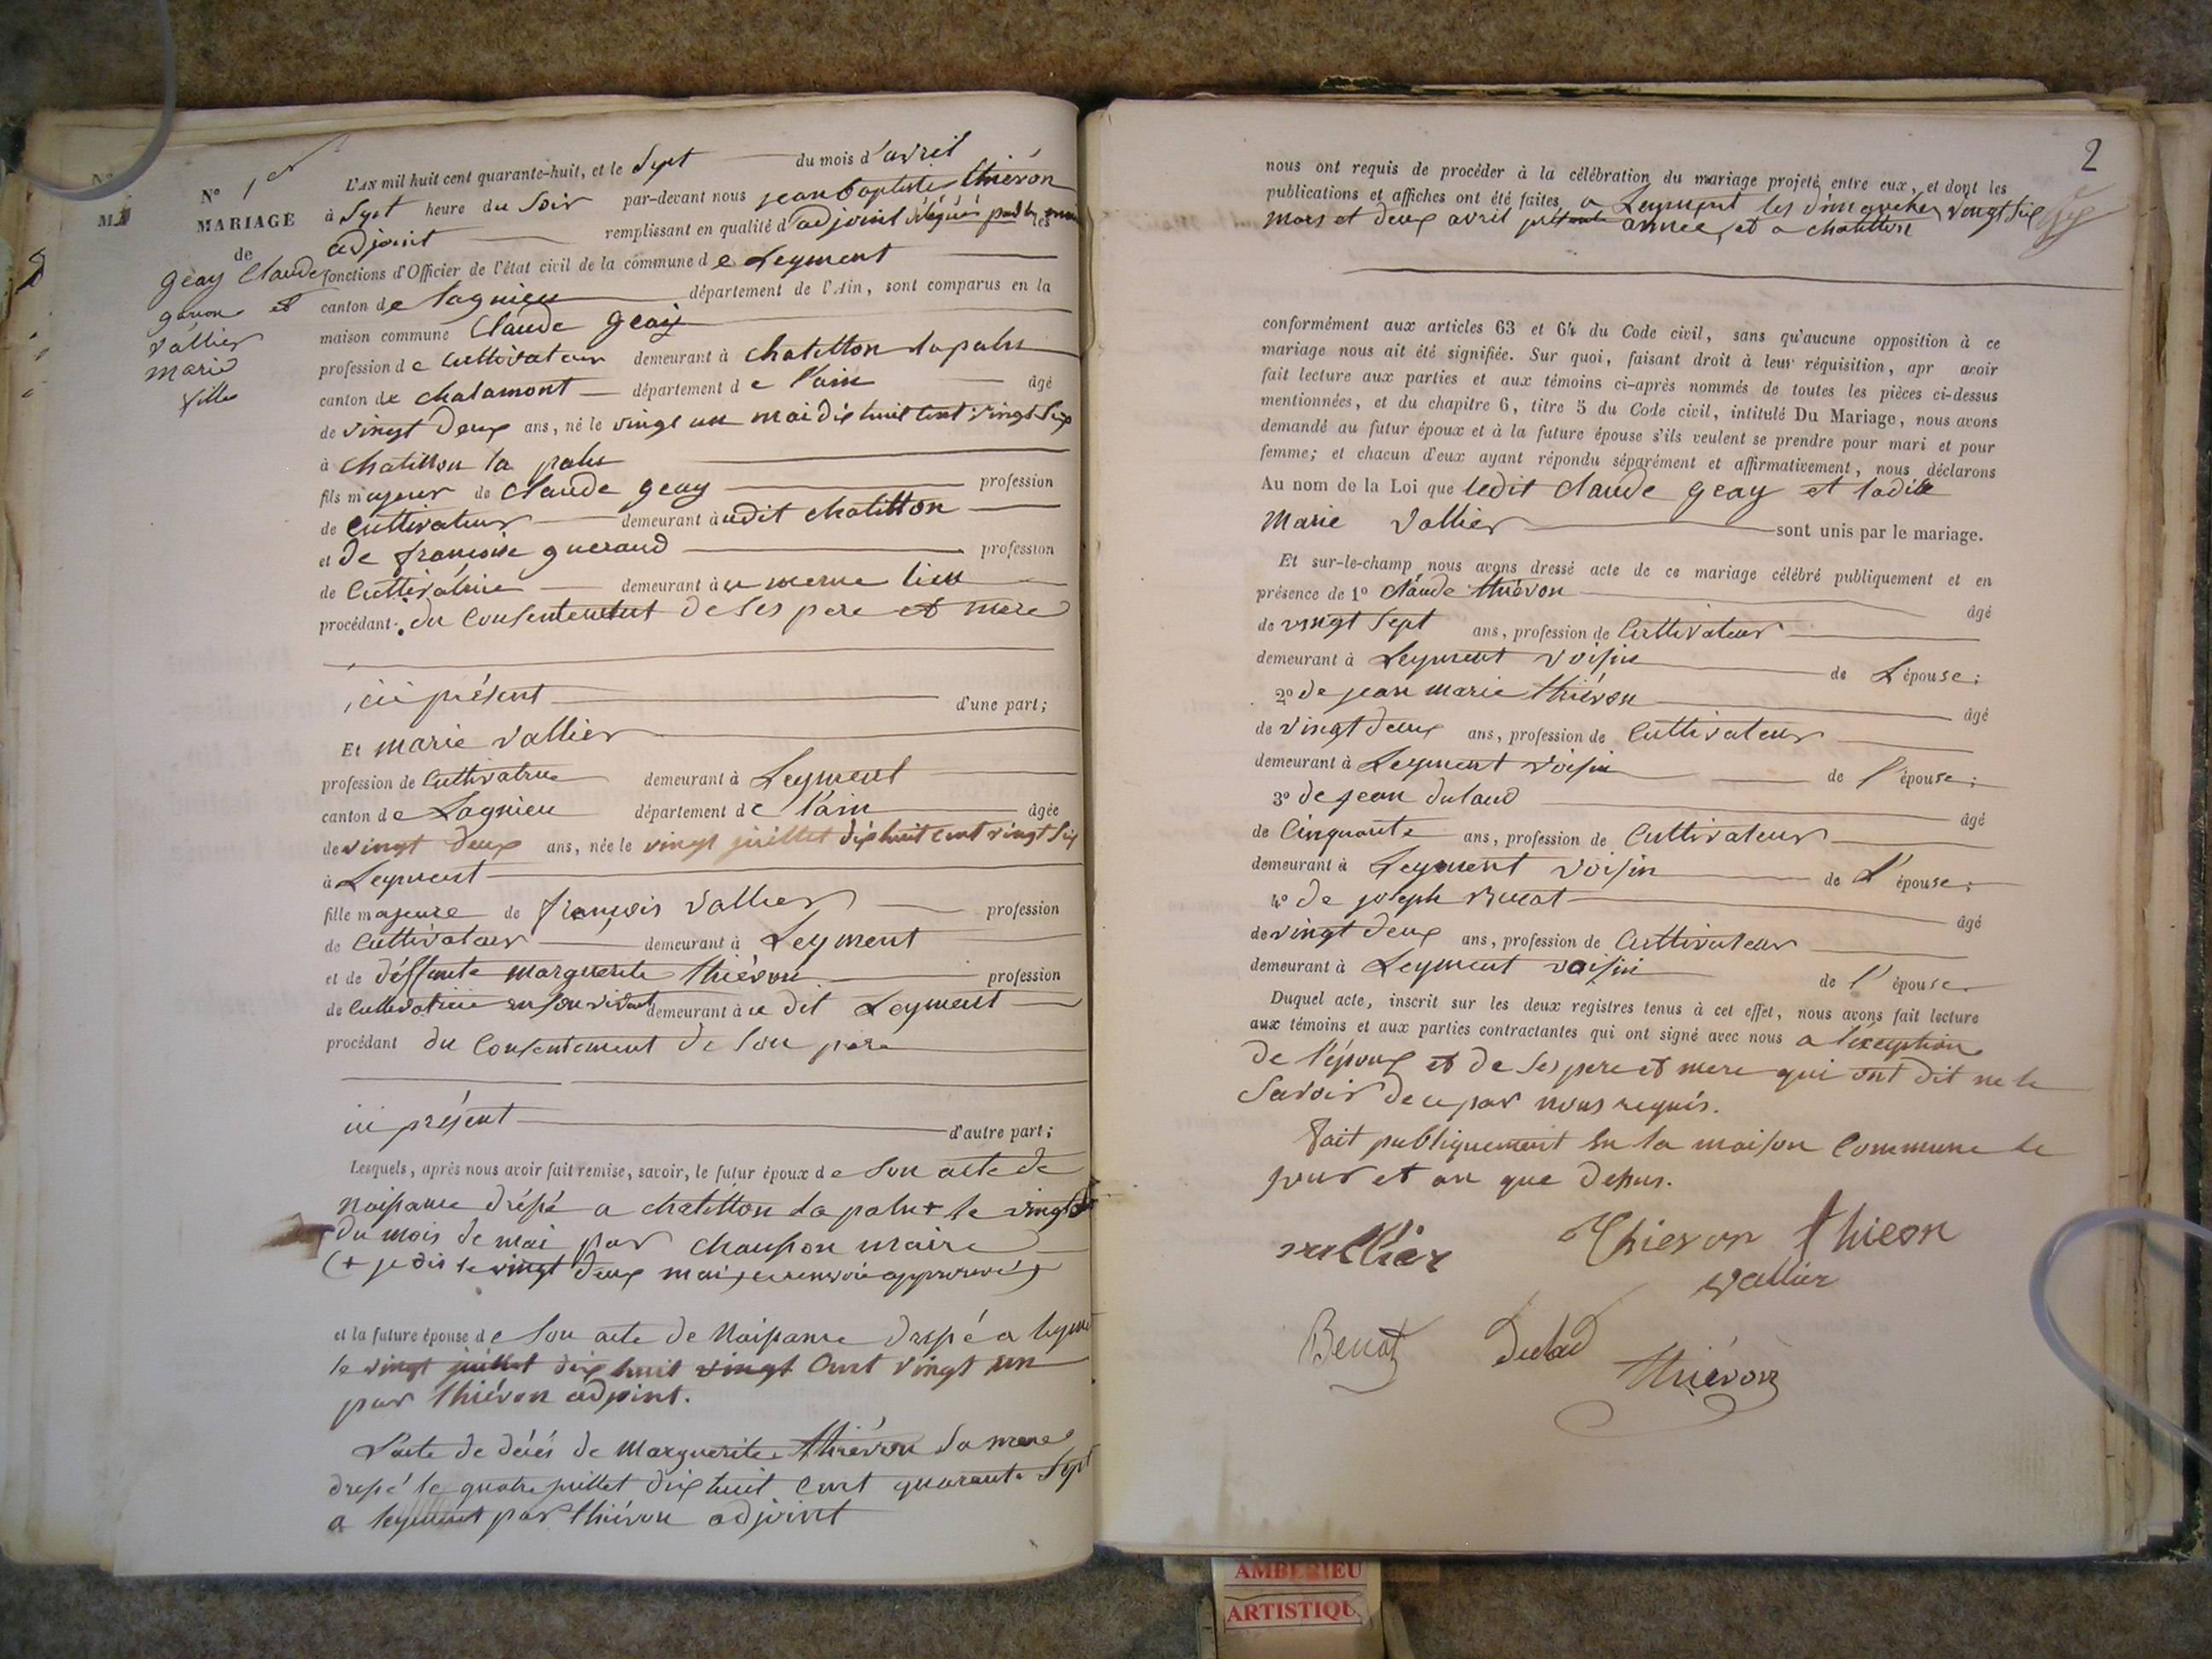 N° 1er
MARIAGE
de
geay Claude
garçon et
vallier
marie
fille
L'AN mil huit cent quarante-huit, et le Sept du mois d'avril
à Sept heure du Soir par-devant nous jean baptiste thiévon
adjoint remplissant en qualité d'adjoint délégués par le maire les
fonctions d'Officier de l'état civil de la commune de Leyment
canton de lagnieu département de l'Ain, sont comparus en la
maison commune Claude geay
profession de Cultivateur demeurant à chatillon lapalu
canton de chalamont département de l'ain âgé
de vingt deux ans, né le vingt un mai dix huit cent vingt six
à chatillon la palu
fils majeur de Claude geay profession
de Cultivateur demeurant à udit chatillon
et de françoise gueraud profession
de Cultivatrice demeurant à u meme lieu
procédant du Consentement de ses pere et mere
ici présent d'une part;
Et marie vallier
profession de Cultivatrice demeurant à Leyment
canton de Lagnieu département de l'ain âgée
de vingt deux ans, née le vingt juillet dix huit cent vingt six
à Leyment
fille majeure de françois vallier profession
de Cultivateur demeurant à Leyment
et de déffunte marguerite thiévon profession
de Cultivatrice en son vivant demeurant à u dit Leyment
procédant du Consentement de son pere
ici présent d'autre part;
Lesquels, après nous avoir fait remise, savoir, le futur époux de son acte de
Naissance dréssé a chatillon la palu + le vingt
du mois de mai par chausson maire
(+ je dis le vingt deux mai, renvoi approuvé)
et la future épouse de son acte de Naissance dressé a leyment
le vingt juillet dix huit vingt Cent vingt un
par thiévon adjoint.
L'acte de décés de Marguerite thiévon sa mere
dressé le quatre juillet dix huit cent quarante sept
a leyment par thiévon adjoint
2
nous ont requis de procéder à la célébration du mariage projeté entre eux, et dont les
publications et affiches ont été faites a Leyment les dimanches vingt six
mars et deux avril présente année, et a chatillon
conformément aux articles 63 et 64 du Code civil, sans qu'aucune opposition à ce
mariage nous ait été signifiée. Sur quoi, faisant droit à leur réquisition, apr avoir
fait lecture aux parties et aux témoins ci-après nommés de toutes les pièces ci-dessus
mentionnées, et du chapitre 6, titre 5 du Code civil, intitulé Du Mariage, nous avons
demandé au futur époux et à la future épouse s'ils veulent se prendre pour mari et pour
femme; et chacun d'eux ayant répondu séparément et affirmativement, nous déclarons
Au nom de la Loi que ledit Claude geay et ladite
Marie vallier sont unis par le mariage.
Et sur-le-champ nous avons dressé acte de ce mariage célébré publiquement et en
présence de 1° claude thiévon âgé
de vingt sept ans, profession de Cultivateur
demeurant à Leyment voisin de L'épouse;
2° de jean marie thiévon âgé
de vingt deux ans, profession de Cultivateur
demeurant à Leyment voisin de l'épouse;
3° de jean dulaud âgé
de Cinquante ans, profession de Cultivateur
demeurant à Leyment voisin de L'épouse;
4° de joseph âgé
de vingt deux ans, profession de Cultivateur
demeurant à Leyment voisin de l'épouse
Duquel acte, inscrit sur les deux registres tenus à cet effet, nous avons fait lecture
aux témoins et aux parties contractantes qui ont signé avec nous a l'éxception
de l'époux et de ses pere et mere qui ont dit ne le
savoir de ce par nous requis.
fait publiquement en la maison Commune le
jour et an que dessus.
vallier Thievon thieon
vallier
Benot Dulad
thiévon
AMBERIEU
ARTISTIQU